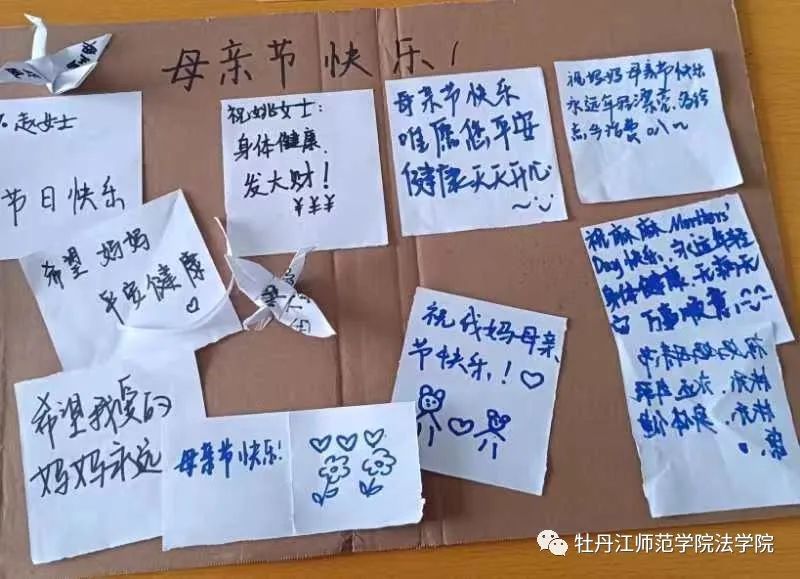 母亲节快乐！
赵女士
节日快乐
祝姚女士：
身体健康
发大财！
¥¥¥
母亲节快乐
唯愿您平安
健康天天开心
祝妈妈母亲节快乐
永远年轻漂亮，多给
点生活费
希望 妈妈
平安健康
祝麻麻Mothers'
Day快乐，永远年轻
身体健康，无病无
万事顺意
祝我妈母亲
节快乐！
希望我爱的
妈妈永远
母亲节快乐！
牡丹江师范学院法学院